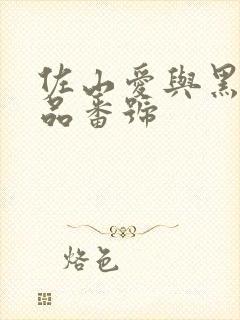 佐山愛與黑
品番號
烙色